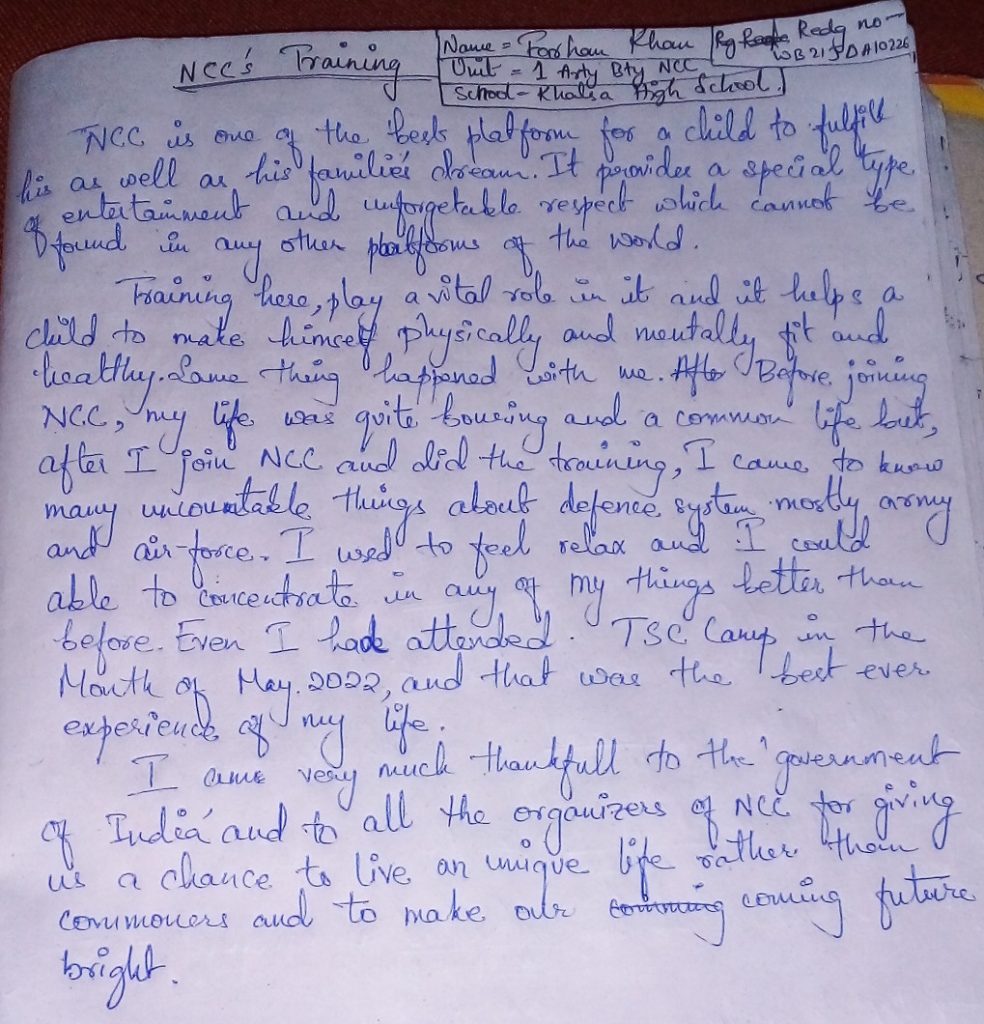 NCC's Training
Name = Farhan Khan
Unit = 1 Arty Bty NCC
School - Khalsa High School.
Redg no -
WB21SDA10226
NCC is one of the best platform for a child to fulfill
his as well as his familie's dream. It provides a special type
of entertainment and unforgetable respect which cannot be
found in any other platforms of the world.
Training here, play a vital role in it and it helps a
child to make himself physically and mentally fit and
healthy. Same thing happened with me. After Before joining
NCC, my life was quite bouring and a common life but,
after I join NCC and did the training, I came to know
many uncountable things about defence system mostly army
and air-force. I used to feel relax and I could
able to concentrate in any of my things better than
before. Even I had attended TSC Camp in the
Month of May. 2022, and that was the best ever
experience of my life.
I am very much thankfull to the 'government
of India' and to all the organizers of NCC for giving
us a chance to live an unique life rather than
commoners and to make our comming coming future
bright.